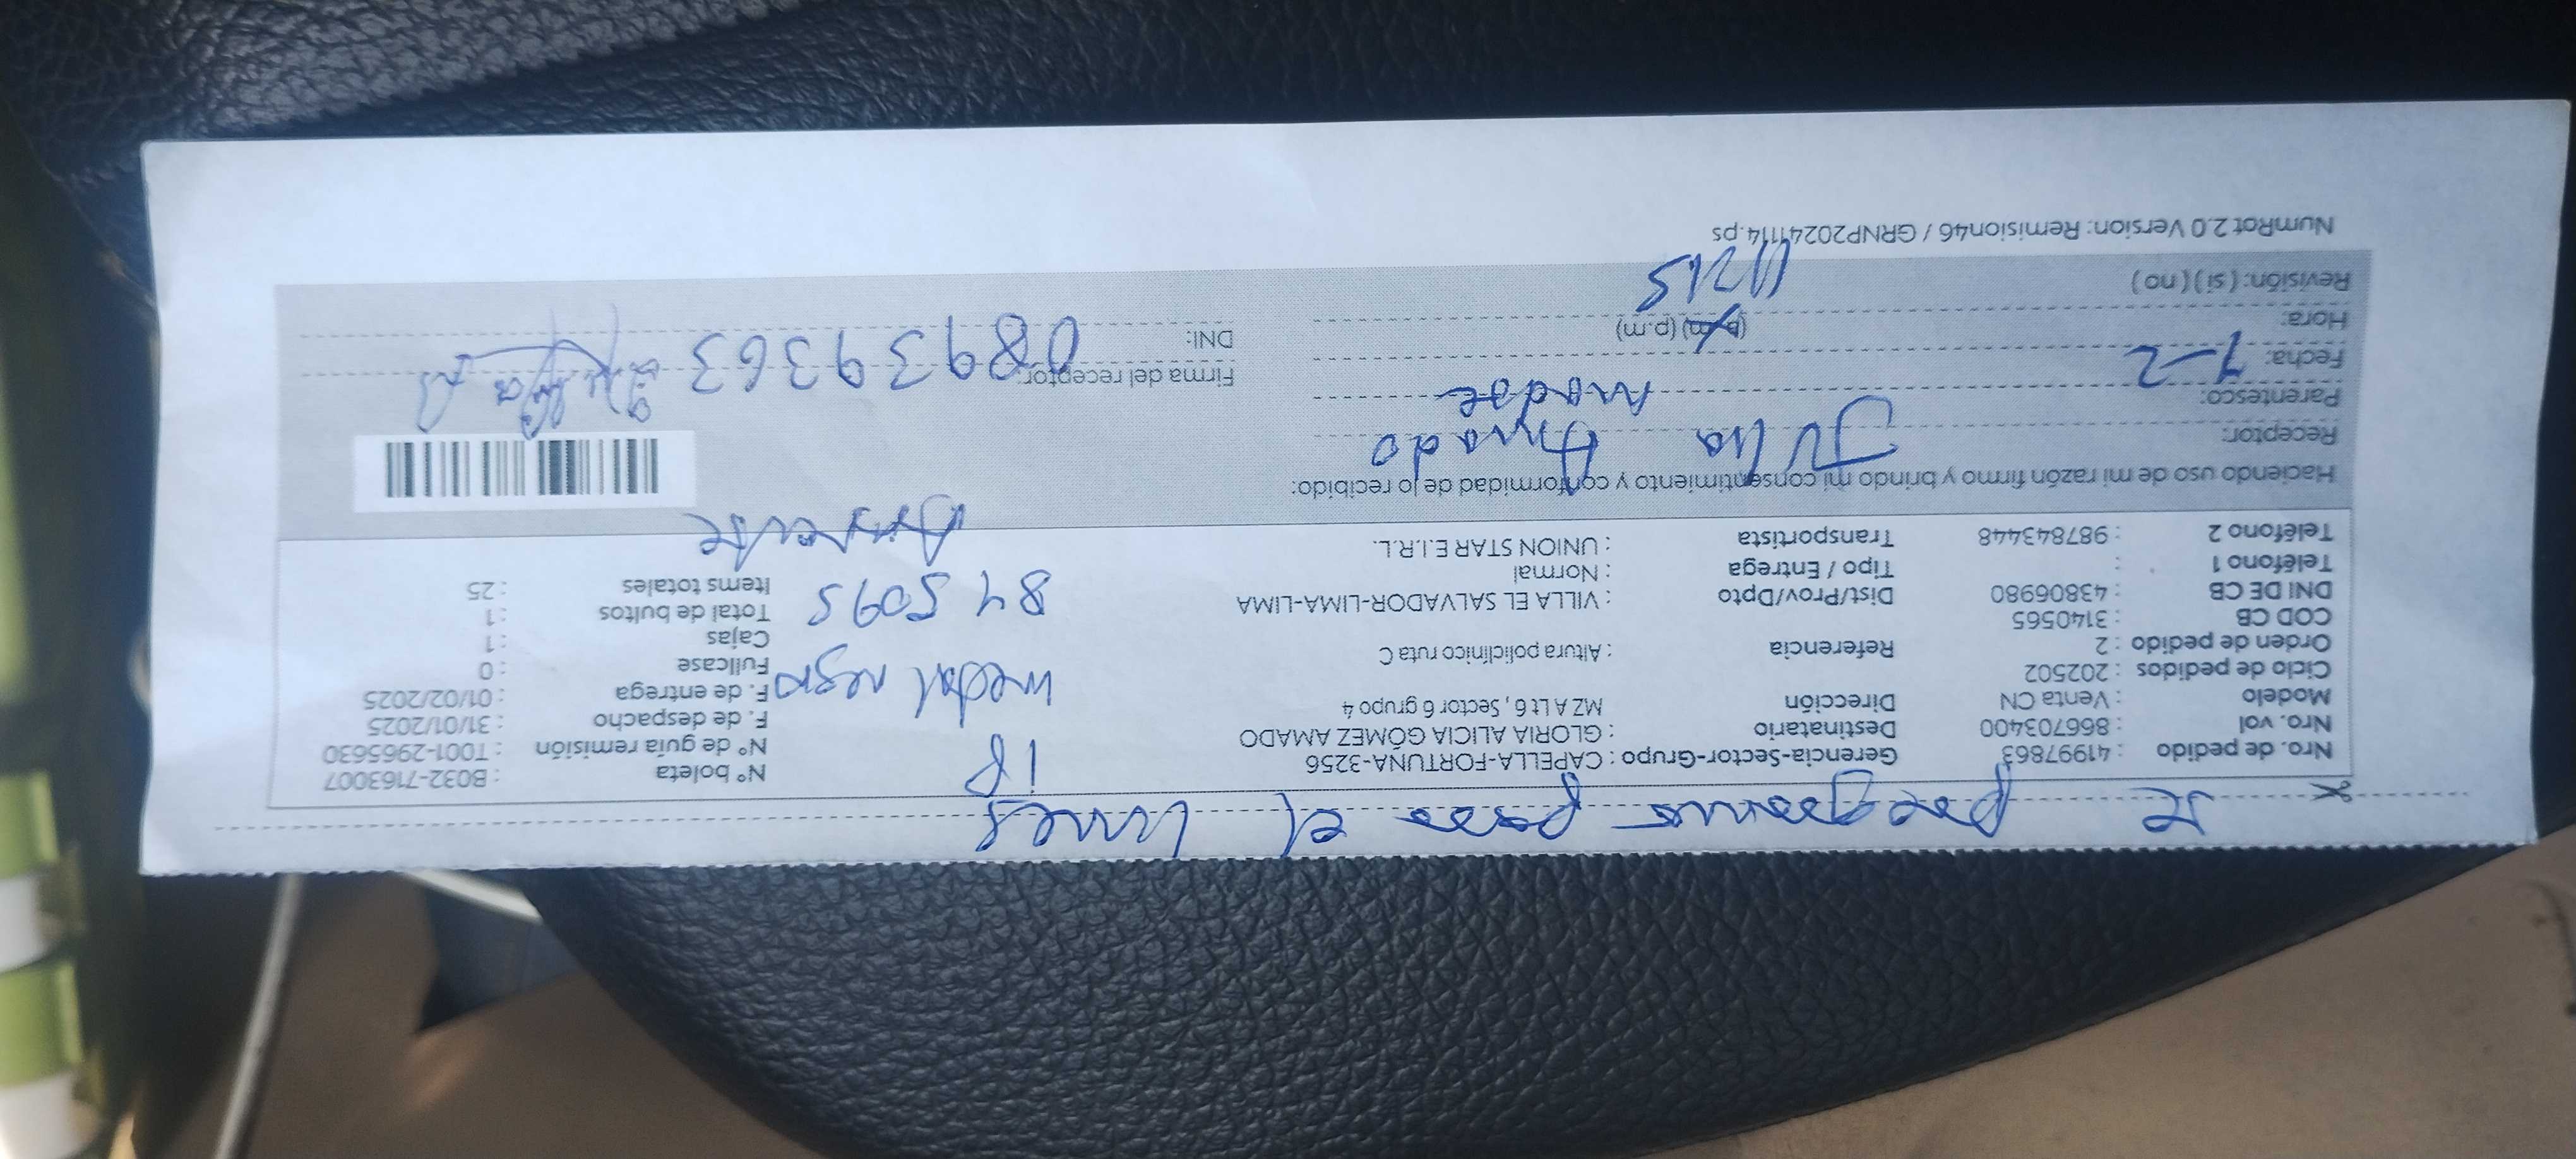 se programo para el lunes
Nro. de pedido : 41997863 Gerencia-Sector-Grupo : CAPELLA-FORTUNA-3256 N° boleta : B032-7163007
Nro. vol : 866703400 Destinatario : GLORIA ALICIA GÓMEZ AMADO 1P N° de guía remisión : T001-2965630
Modelo : Venta CN Dirección MZ A Lt 6 , Sector 6 grupo 4 F. de despacho : 31/01/2025
Ciclo de pedidos : 202502 metal negro F. de entrega : 01/02/2025
Orden de pedido : 2 Referencia : Altura policlínico ruta C Fullcase : 0
COD CB : 3140565 Cajas : 1
DNI DE CB : 43806980 Dist/Prov/Dpto : VILLA EL SALVADOR-LIMA-LIMA 845095 Total de bultos : 1
Teléfono 1 : Tipo / Entrega : Normal Items totales : 25
Teléfono 2 : 987843448 Transportista : UNION STAR E.I.R.L. Ausente
Haciendo uso de mi razón firmo y brindo mi consentimiento y conformidad de lo recibido:
Receptor: Julia Amado
Parentesco: madre
Fecha: 1-2 Firma del receptor:
Hora: (a.m) (p.m) DNI: 08939363
Revisión: ( si ) ( no ) 11215
NumRot 2.0 Version: Remision46 / GRNP20241114.ps